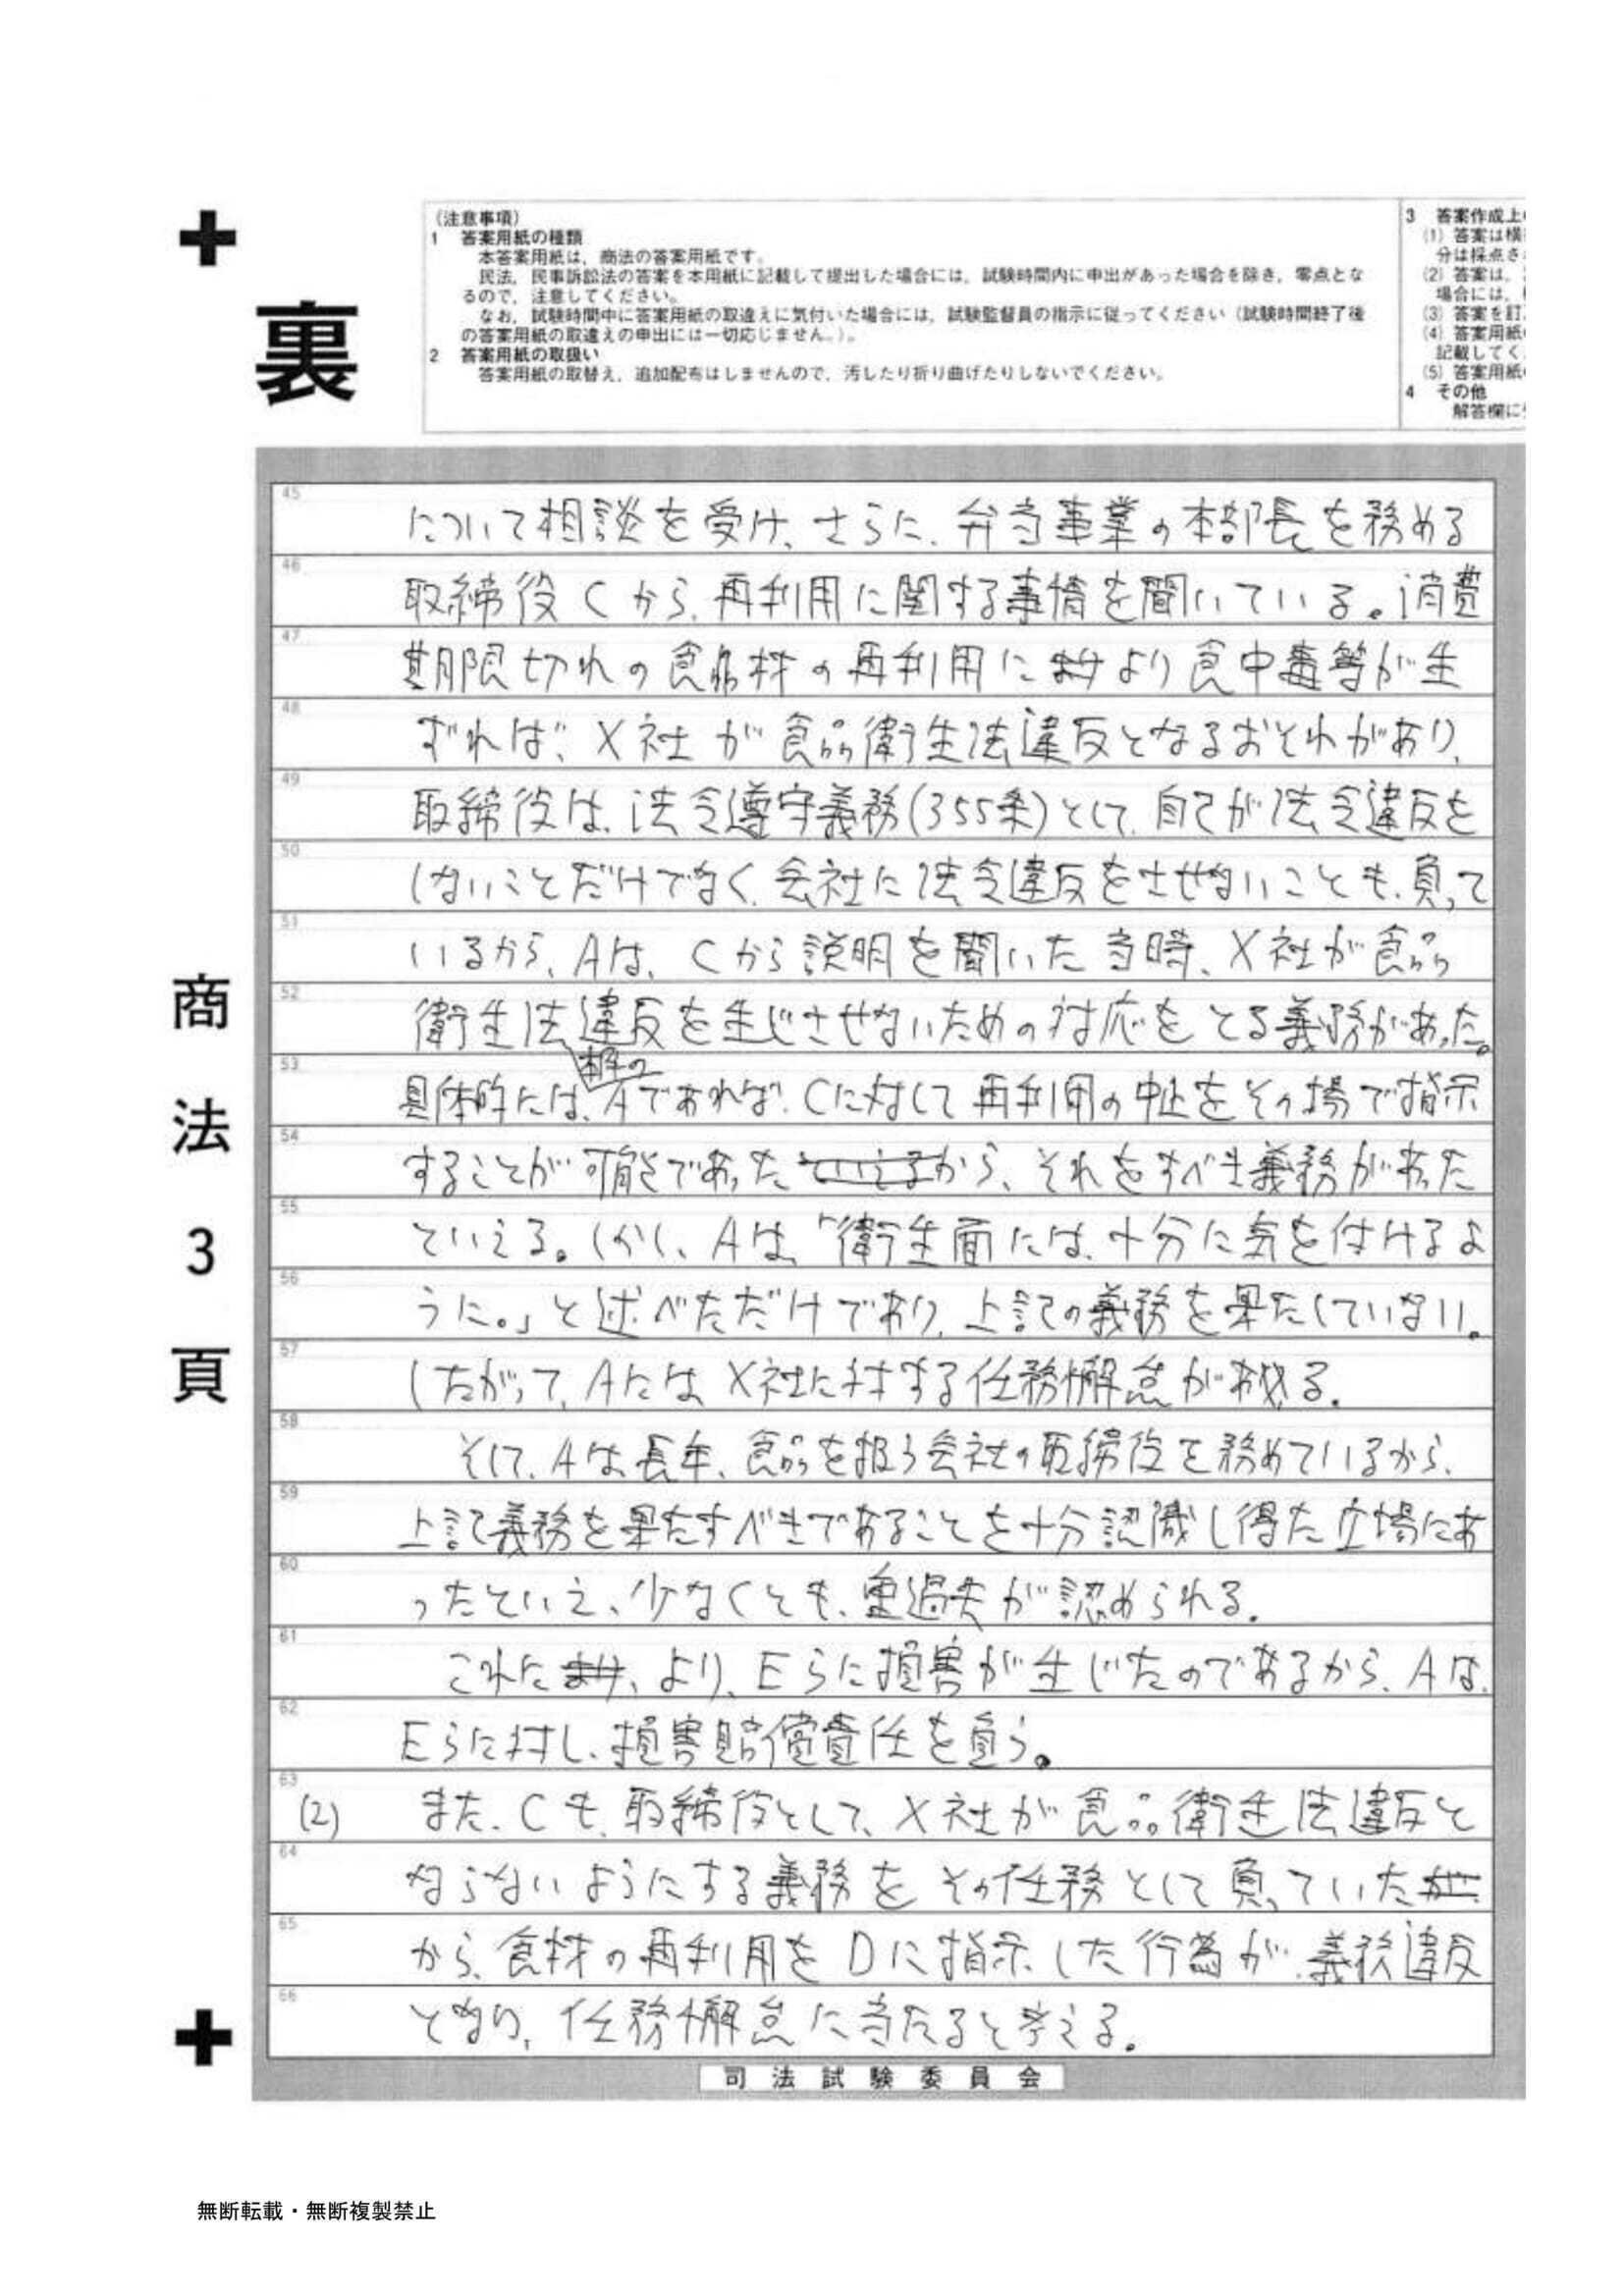 裏
(注意事項)
1 答案用紙の種類
本答案用紙は，商法の答案用紙です。
民法，民事訴訟法の答案を本用紙に記載して提出した場合には，試験時間内に申出があった場合を除き，零点とな
るので，注意してください。
なお，試験時間中に答案用紙の取違えに気付いた場合には，試験監督員の指示に従ってください（試験時間終了後
の答案用紙の取違えの申出には一切応じません。）。
2 答案用紙の取扱い
答案用紙の取替え，追加配布はしませんので，汚したり折り曲げたりしないでください。
3 答案作成上
(1) 答案は横
分は採点さ
(2) 答案は，
場合には，
(3) 答案を訂
(4) 答案用紙
記載してく
(5) 答案用紙
4 その他
解答欄に
商法3頁
45 について相談を受け、さらに、弁当事業の本部長を務める
46 取締役Cから、再利用に関する事情を聞いている。消費
47 期限切れの食品材の再利用により食中毒等が生
48 ずれば、X社が食品衛生法違反となるおそれがあり、
49 取締役は、法令遵守義務(355条)として、自己が法令違反を
50 しないことだけでなく、会社に法令違反をさせないことも、負って
51 いるから、Aは、Cから説明を聞いた当時、X社が食品
52 衛生法違反を生じさせないための対応をとる義務があった。
53 具体的には、本件のAであれば、Cに対して再利用の中止をその場で指示
54 することが可能であったから、それをすべき義務があった
55 といえる。しかし、Aは、「衛生面には、十分に気を付けるよ
56 うに。」と述べただけであり、上記の義務を果たしていない。
57 したがって、Aには、X社に対する任務懈怠がある。
58 そして、Aは、長年、食品を扱う会社の取締役を務めているから、
59 上記義務を果たすべきであることを十分認識し得た立場にあ
60 ったといえ、少なくとも、重過失が認められる。
61 これにより、Eらに損害が生じたのであるから、Aは、
62 Eらに対し、損害賠償責任を負う。
63 (2) また、Cも、取締役として、X社が食品衛生法違反と
64 ならないようにする義務をその任務として負っていた
65 から、食材の再利用をDに指示した行為が、義務違反
66 となり、任務懈怠に当たると考える。
司法試験委員会
無断転載・無断複製禁止